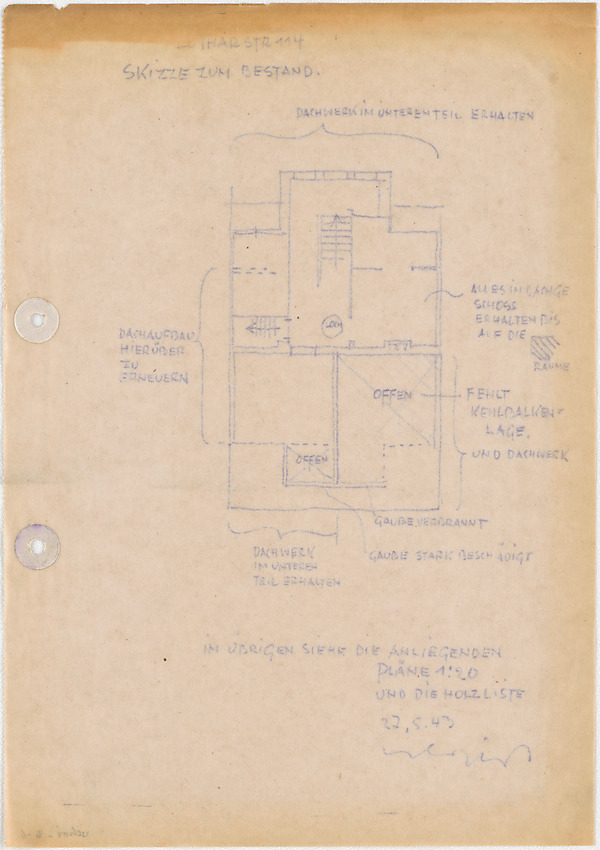 IHARSTR 114
SKIZZE ZUM BESTAND.
DACHWERK IM UNTEREN TEIL ERHALTEN
ALLES IM DACHGE
SCHOSS
ERHALTEN BIS
AUF DIE
RÄUME
DACHAUFBAU
HIERÜBER
ZU
ERNEUERN
OFFEN
FEHLT
KEHLBALKEN=
LAGE.
UND DACHWERK
OFFEN
GAUBE VERBRANNT
GAUBE STARK BESCHÄDIGT
DACHWERK
IM UNTEREN
TEIL ERHALTEN
IM ÜBRIGEN SIEHE DIE ANLIEGENDEN
PLÄNE 1:20
UND DIE HOLZLISTE
27.5.43